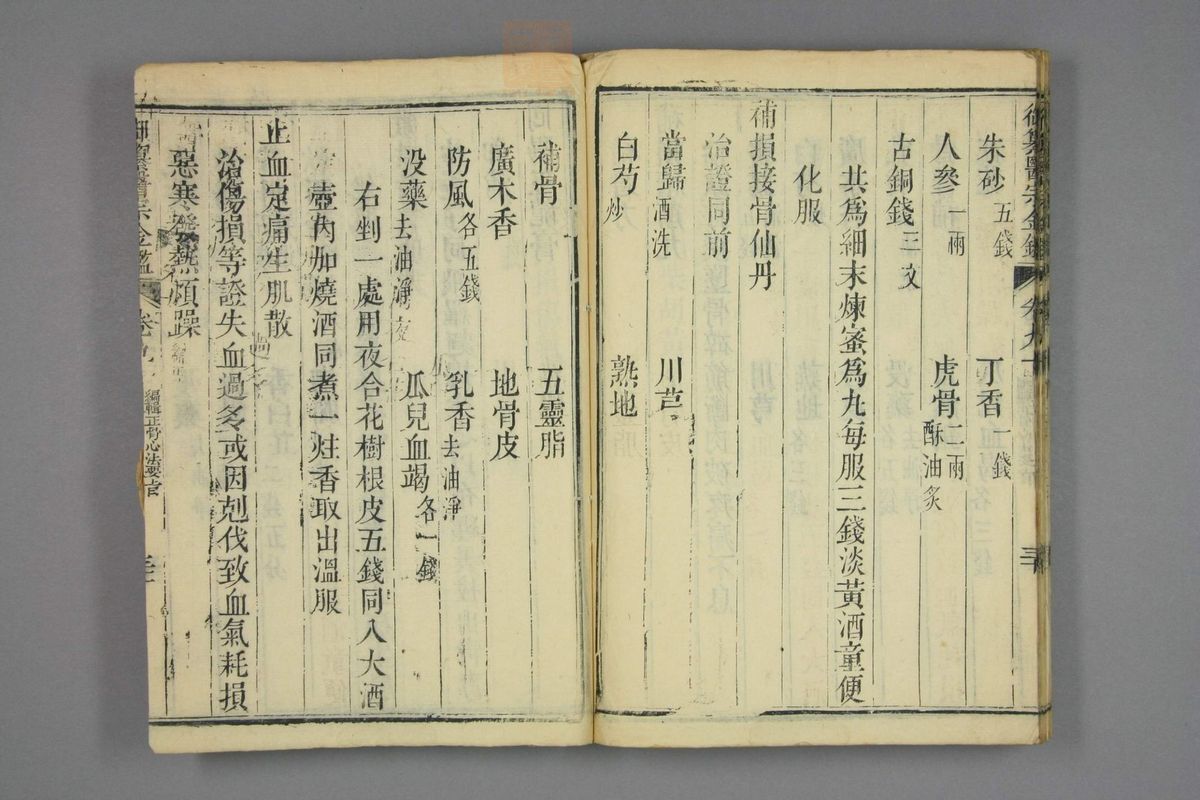 朱砂五錢　丁香一錢
人參一兩　虎骨二兩酥油炙
古銅錢三文
共爲細末煉蜜爲丸每服三錢淡黃酒童便
化服
補損接骨仙丹
治證同前
當歸酒洗　川芎
白芍炒　熟地
補骨　五靈脂
廣木香　地骨皮
防風各五錢　乳香去油淨
没藥去油淨　瓜兒血竭各一錢
右剉一處用夜合花樹根皮五錢同入大酒
壺內加燒酒同煮一炷香取出溫服
止血定痛生肌散
治傷損等證失血過多或因剋伐致血氣耗損
惡寒發熱煩躁
御纂醫宗金鑑　卷九　編輯正骨心法要旨